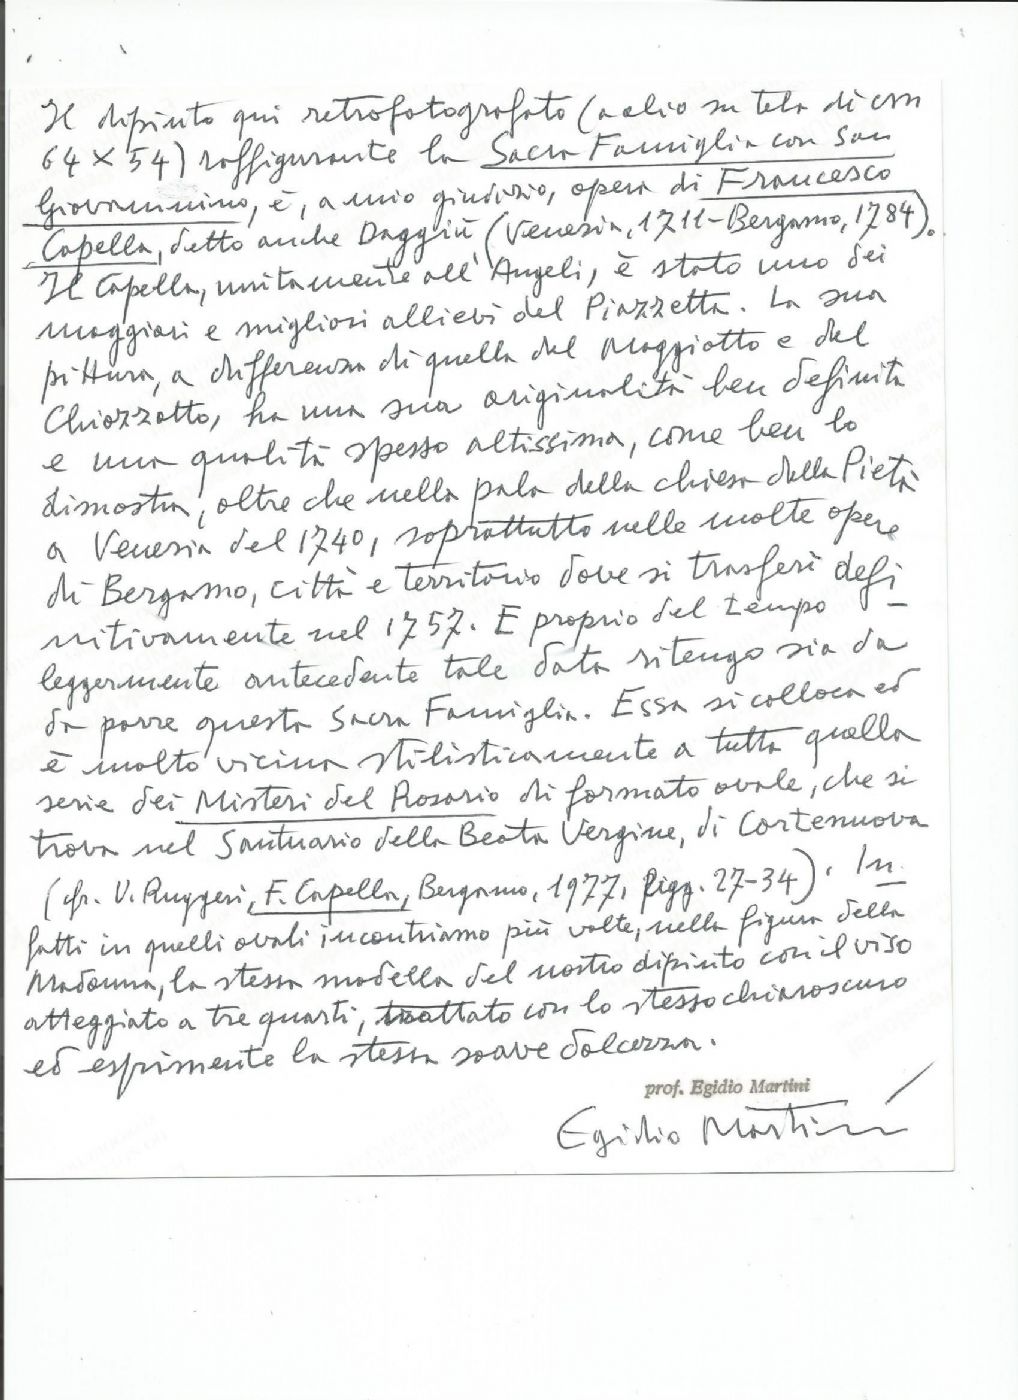 Il dipinto qui retrofotografato (a olio su tela di cm
64 × 54) raffigurante la Sacra Famiglia con San
Giovannino, è, a mio giudizio, opera di Francesco
Capella, detto anche Daggiù (Venezia, 1711-Bergamo, 1784).
Il Capella, unitamente all'Angeli, è stato uno dei
maggiori e migliori allievi del Piazzetta. La sua
pittura, a differenza di quella del Maggiotto e del
Chiozzotto, ha una sua originalità ben definita
e una qualità spesso altissima, come ben lo
dimostra, oltre che nella pala della chiesa della Pietà
a Venezia del 1740, soprattutto nelle molte opere
di Bergamo, città e territorio dove si trasferì defi-
nitivamente nel 1757. E proprio del tempo
leggermente antecedente tale data ritengo sia da
da porre questa Sacra Famiglia. Essa si colloca ed
è molto vicina stilisticamente a tutta quella
serie dei Misteri del Rosario di formato ovale, che si
trova nel Santuario della Beata Vergine, di Cortenuova
(cfr. V. Ruggeri, F. Capella, Bergamo, 1977, figg. 27-34). In-
fatti in quelli ovali incontriamo più volte, nella figura della
Madonna, la stessa modella del nostro dipinto con il viso
atteggiato a tre quarti, trattato con lo stesso chiaroscuro
ed esprimente la stessa soave dolcezza.
prof. Egidio Martini
Egidio Martini